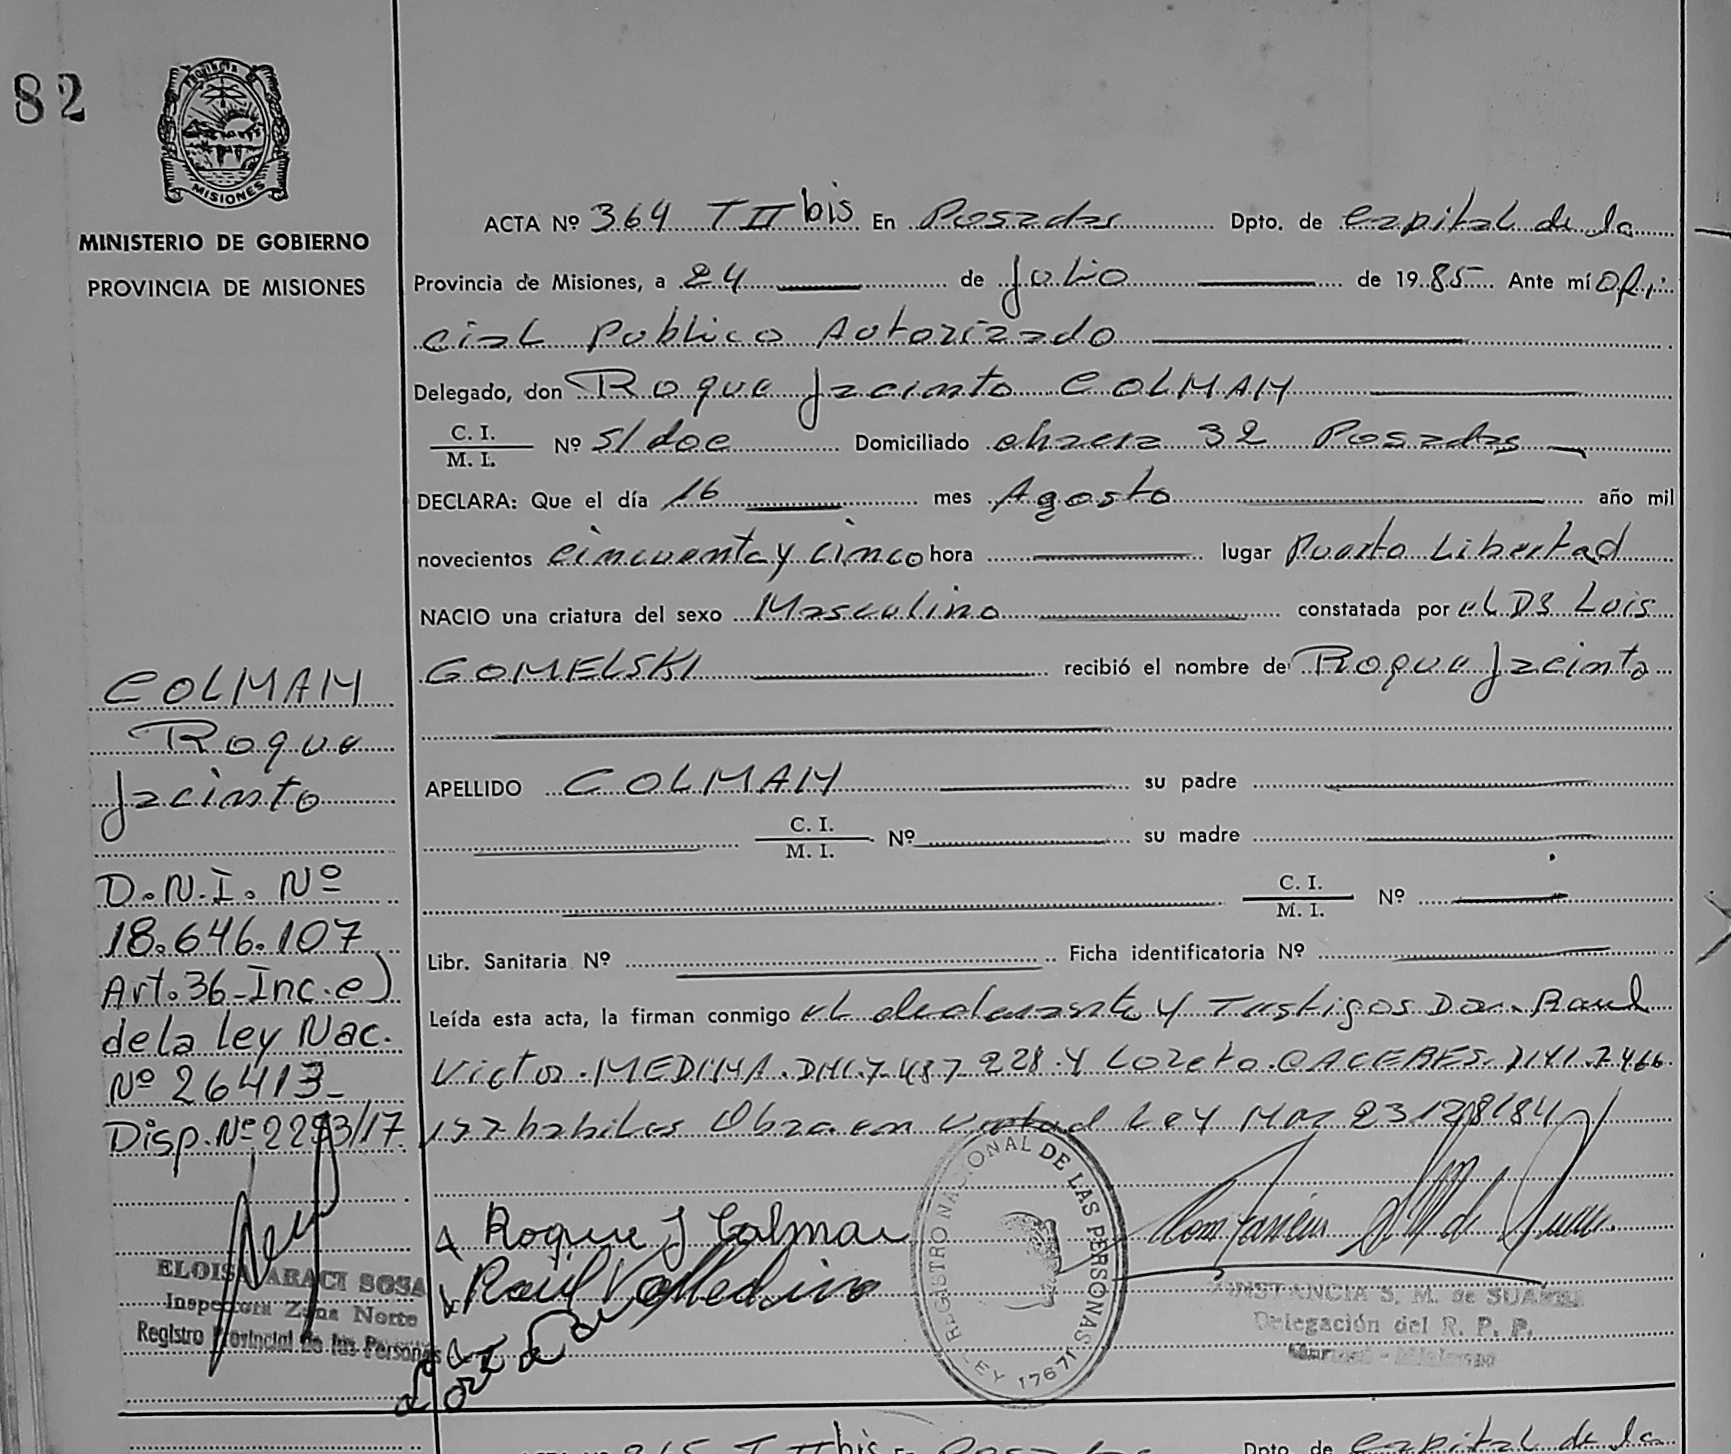 82
Provincia
MISIONES
MINISTERIO DE GOBIERNO
PROVINCIA DE MISIONES
COLMAN
Roque
Jacinto
D.N.I. Nº
18.646.107
Art.36-Inc.e)
de la ley Nac.
Nº 26413-
Disp.Nº2293/17.
ELOISA ARACI SOSA
Inspectora Zona Norte
Registro Provincial de las Personas
ACTA Nº 364 T II bis En Posadas Dpto. de capital de la
Provincia de Misiones, a 24 de Julio de 1985 Ante mí Ofi-
cial Publico Autorizado
Delegado, don Roque Jacinto COLMAN
C. I.
M. I. Nº s/doc Domiciliado chacra 32 Posadas
DECLARA: Que el día 16 mes Agosto año mil
novecientos cincuenta y cinco hora lugar Puerto Libertad
NACIO una criatura del sexo Masculino constatada por el DS Luis
GOMELSKI recibió el nombre de Roque Jacinto
APELLIDO COLMAN su padre
C. I.
M. I. Nº su madre
C. I.
M. I. Nº
Libr. Sanitaria Nº Ficha identificatoria Nº
Leída esta acta, la firman conmigo el declarante y Testigos Don Raul
Victor MEDINA DNI 7 487 228 y Loreto CACERES M.I. 7.466.
habiles Obra en Virtud Ley Nac 23128/84
Roque J Colman
REGISTRO NACIONAL DE LAS PERSONAS
LEY 17671
CONSTANCIA S. M. de
Delegación del R. P. P.
T II bis En Posadas Dpto. de capital de la